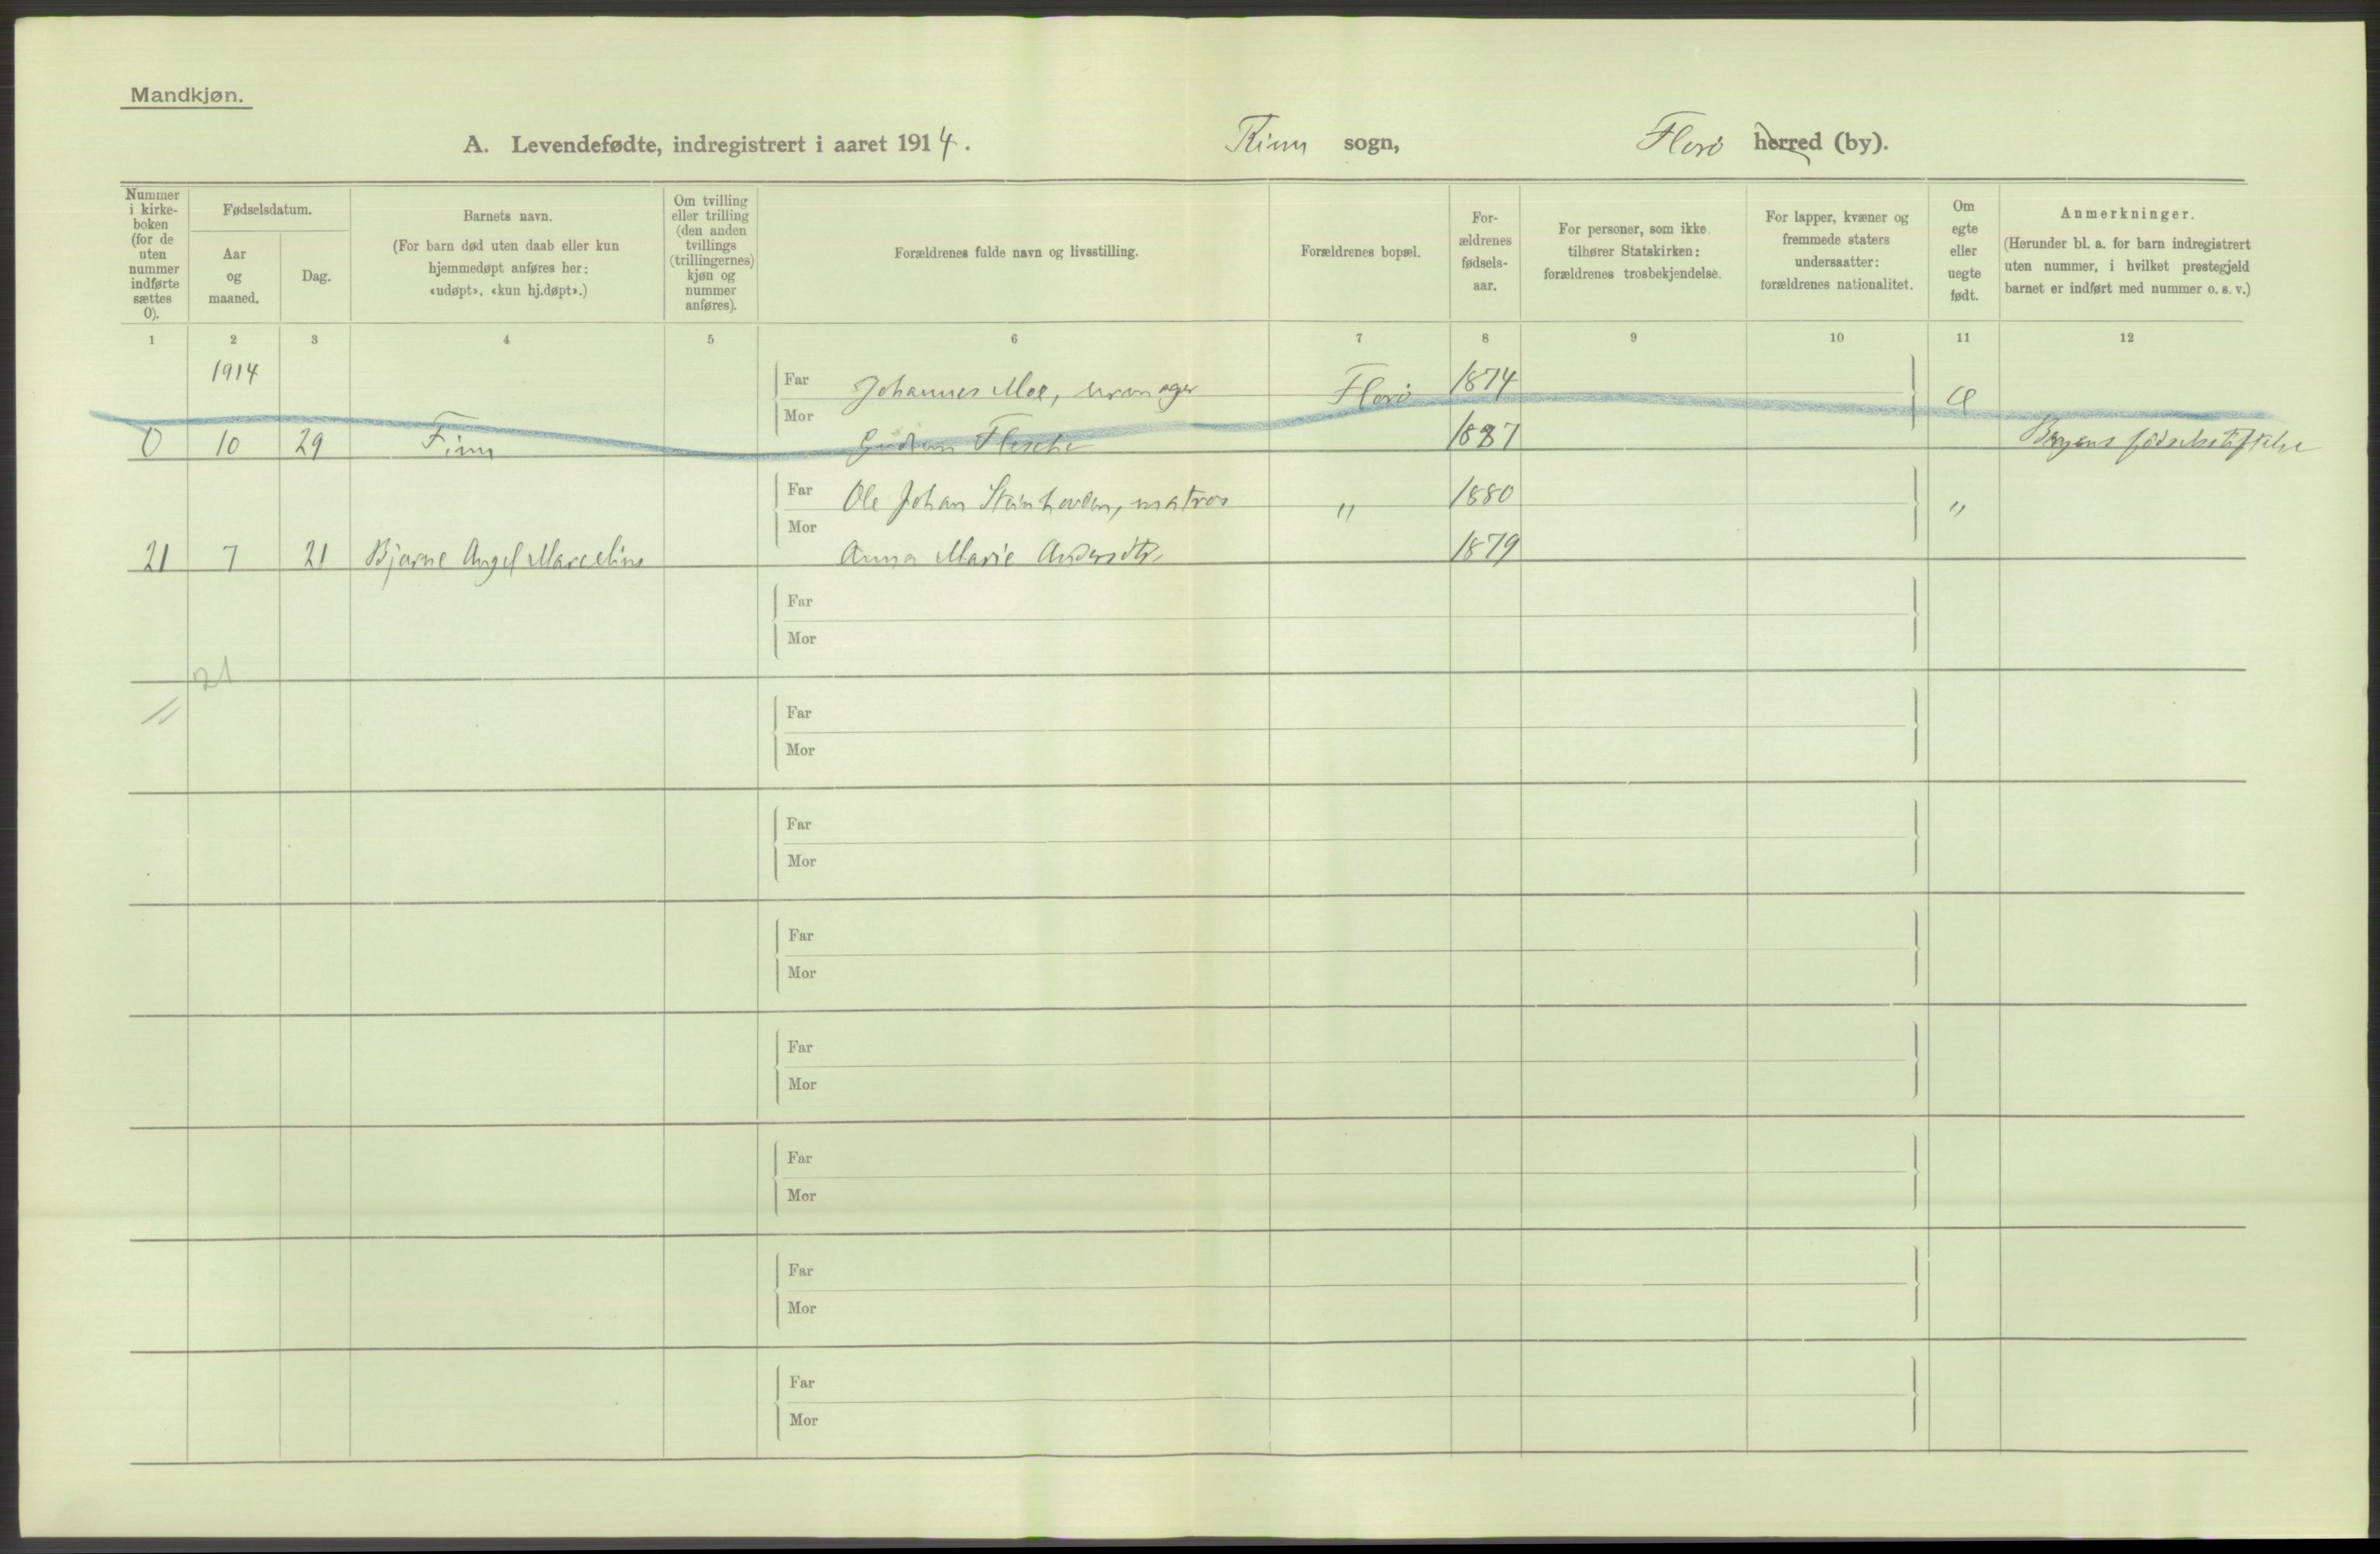 Mandkjøn.
A. Levendefødte, indregistrert i aaret 1914. Kinn sogn, Florø herred (by).
Nummer i kirke-boken (for de uten nummer indførte sættes 0).
Fødselsdatum.
Aar og maaned.
Dag.
Barnets navn.
(For barn død uten daab eller kun hjemmedøpt anføres her: «udøpt», «kun hj.døpt».)
Om tvilling eller trilling (den anden tvillings (trillingernes) kjøn og nummer anføres).
Forældrenes fulde navn og livsstilling.
Forældrenes bopæl.
For-ældrenes fødsels-aar.
For personer, som ikke tilhører Statskirken: forældrenes trosbekjendelse.
For lapper, kvæner og fremmede staters undersaatter: forældrenes nationalitet.
Om egte eller uegte født.
Anmerkninger.
(Herunder bl. a. for barn indregistrert uten nummer, i hvilket prestegjeld barnet er indført med nummer o. s. v.)
1 2 3 4 5 6 7 8 9 10 11 12
1914
Far Johannes Moe, Florø 1874 e
Mor
0 10 29 Finn Gudrun Flesche 1887 Bergens fødselsstiftelse
Far Ole Johan Steinhovden, matros " 1880 "
Mor
21 7 21 Bjarne Angel Marcelius Anna Marie Andersdtr. 1879
Far
Mor
21
Far
Mor
Far
Mor
Far
Mor
Far
Mor
Far
Mor
Far
Mor
Far
Mor